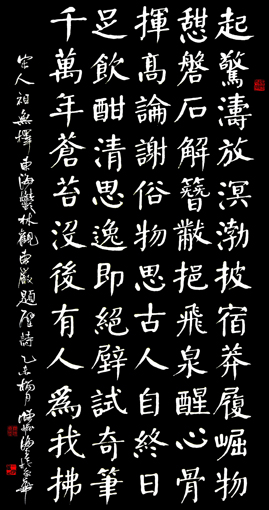 起驚濤放溟渤披宿莽履崛物
憇磐石解簪黻挹飛泉醒心骨
揮高論謝俗物思古人自終日
足飲酣清思逸即絕壁試奇筆
千萬年蒼苔沒後有人為我拂
宋人祖無擇東海鬱林觀東巖題壁詩